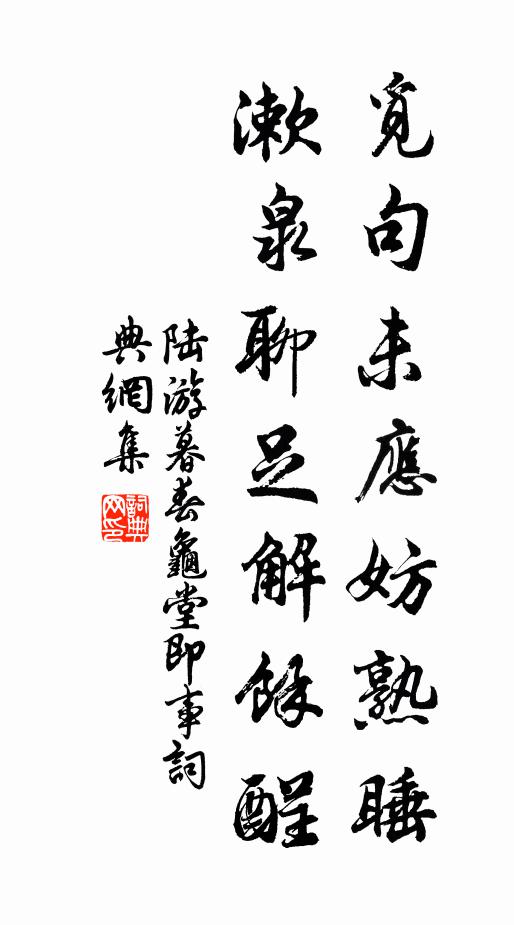 覓句未應妨熟睡
漱泉聊足解餘酲
陸游暮春龜堂即事詞
典網集
詞典網印